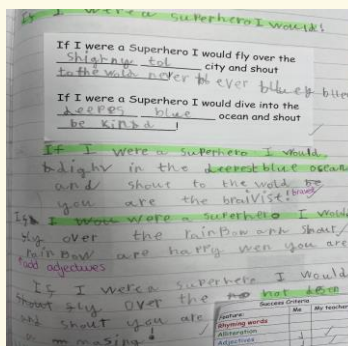 If I were a superhero I would:
If I were a Superhero I would fly over the
shighny tol city and shout
to the wold never ever
If I were a Superhero I would dive into the
deepes blue ocean and shout
be kind !
If I were a superhero I would
in the deerest blue ocean
and shout to the wold be
you are the bralvist! brave
If I wou were a superhero I would
fly over the rainbow and shout
rainbow are harry wen you are
*add adjectives
If I were a superhero I would
shout fly over the hot
and shout you are
Success Criteria
Feature: Me My teacher
Rhyming words
Alliteration
Adjectives